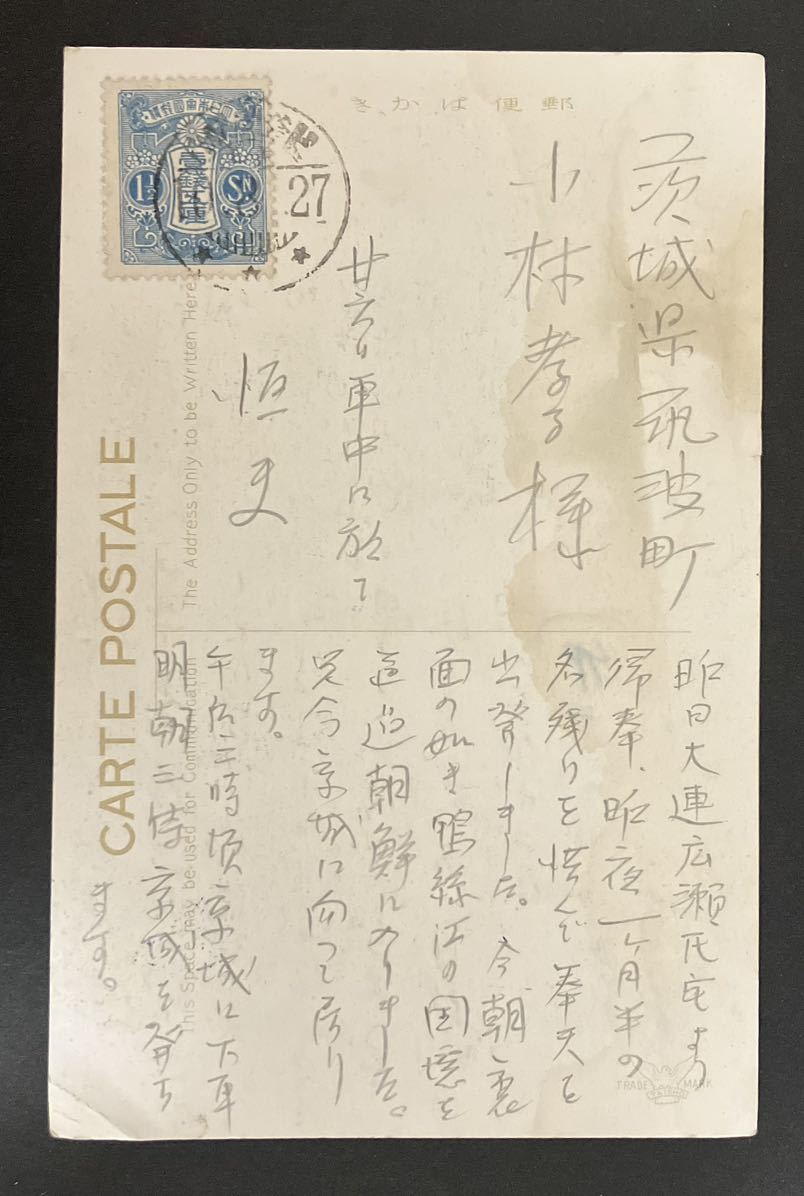 郵便はかき
茨城県筑波町
小林孝子様
廿六日車中に於て
恒
昨日大連広瀬氏宅より
帰奉、昨夜一ヶ月半の
名残りを惜んで奉天を
出発しました。今朝裏
面の如き鴨緑江の国境を
通過朝鮮に入りました。
只今京城に向つて居り
ます。
午后三時頃京城に下車
明朝三時京城を発ち
ます。
大日本帝国郵便
壹銭五厘
1½ SN.
27
CARTE POSTALE
The Address Only to be Written Here.
This Space may be used for Communication
TRADE MARK
TAISHO